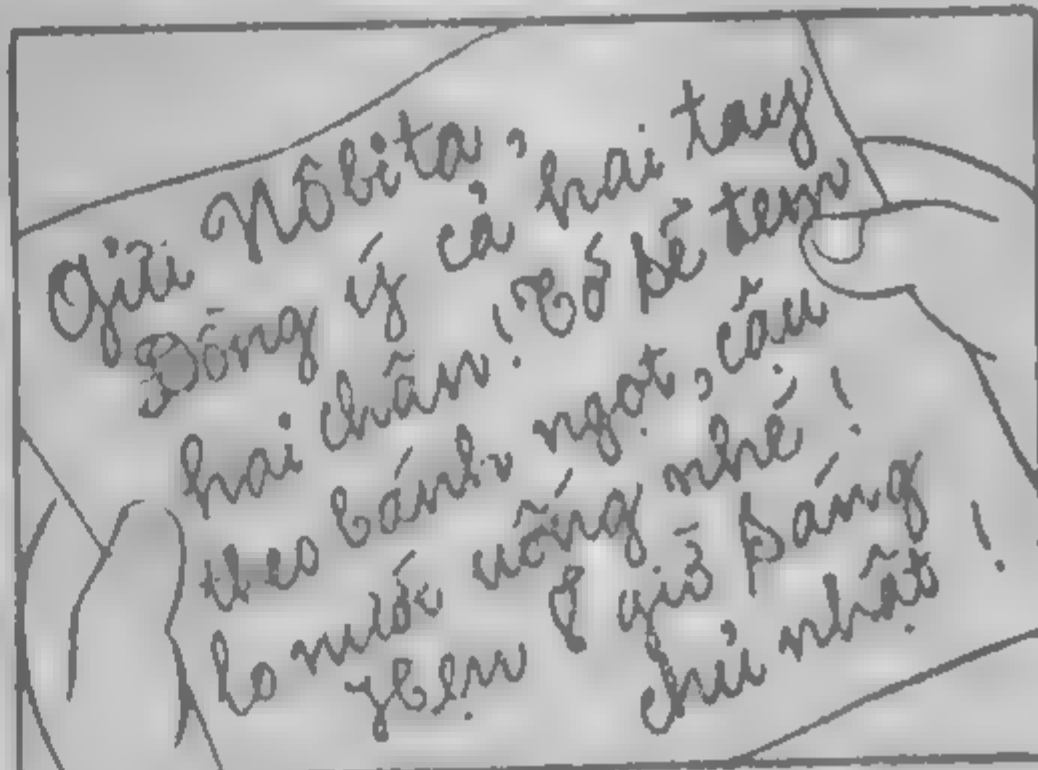 Gửi Nôbita,
Đồng ý cả hai tay
hai chân! Tớ sẽ tem
theo bánh ngọt, cậu
lo nước uống nhé!
Hẹn 8 giờ sáng
chủ nhật!